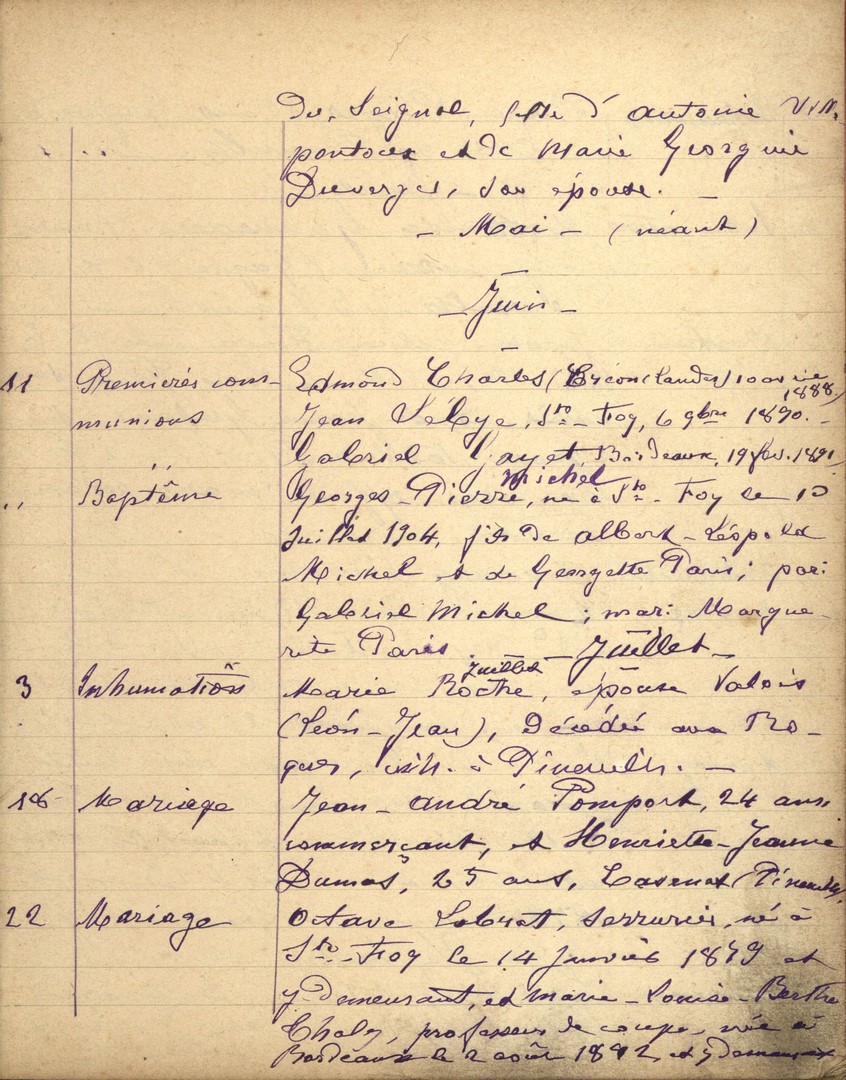 Du Seignal, fille d'Antoine Vill.
pontoux et de Marie Georgine
Duverger, son épouse. –
– Mai – (néant)
– Juin –
11 Premières com- Edmond Charles (Créon Landes) 10 avril 1888.
munions Jean Ste Foy, 6 9bre 1890. –
Gabriel Gayet, Bordeaux, 19 fév. 1891
" Baptême Georges-Pierre Michel, né à Ste-Foy le 10
Juillet 1904, fils de Albert-Léopold
Michel et de Georgette Paris; par:
Gabriel Michel; mar: Margue-
rite Paris. – Juillet –
3 Inhumation Marie Roche, épouse Valois
Juillet
(Léon-Jean), Décédée aux Ro-
ques, inh. à Pineuilh. –
18 Mariage Jean-André Pomport, 24 ans
commerçant, et Henriette-Jeanne
Dumas, 25 ans, (Pineuilh)
22 Mariage Octave serrurier, né à
Ste-Foy le 14 Janvier 1879 et
y demeurant, et Marie-Louise-Berthe
professeur de coupe, née à
Bordeaux le 2 août 1882, et y demeurant